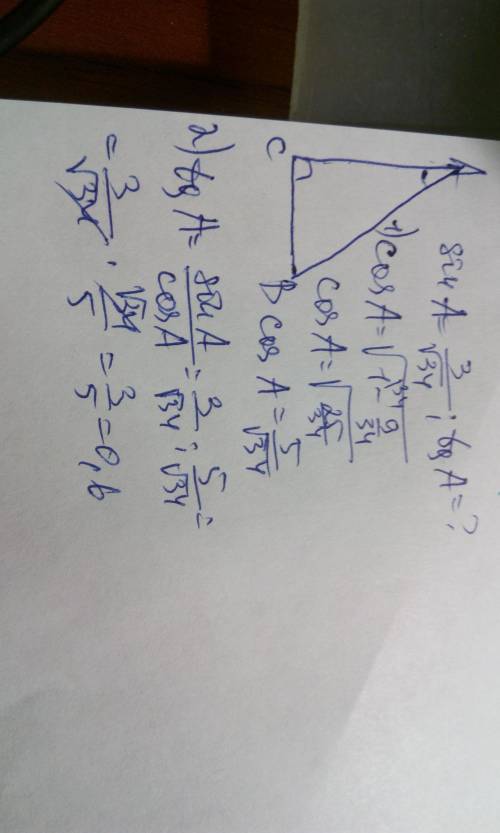 sin A = 3/√34; tg A = ?
A
1) cos A = √(1 - 9/34)
cos A = √(25/34)
C
B
cos A = 5/√34
2) tg A = sin A / cos A = 3/√34 : 5/√34 =
= 3/√34 · √34/5 = 3/5 = 0,6